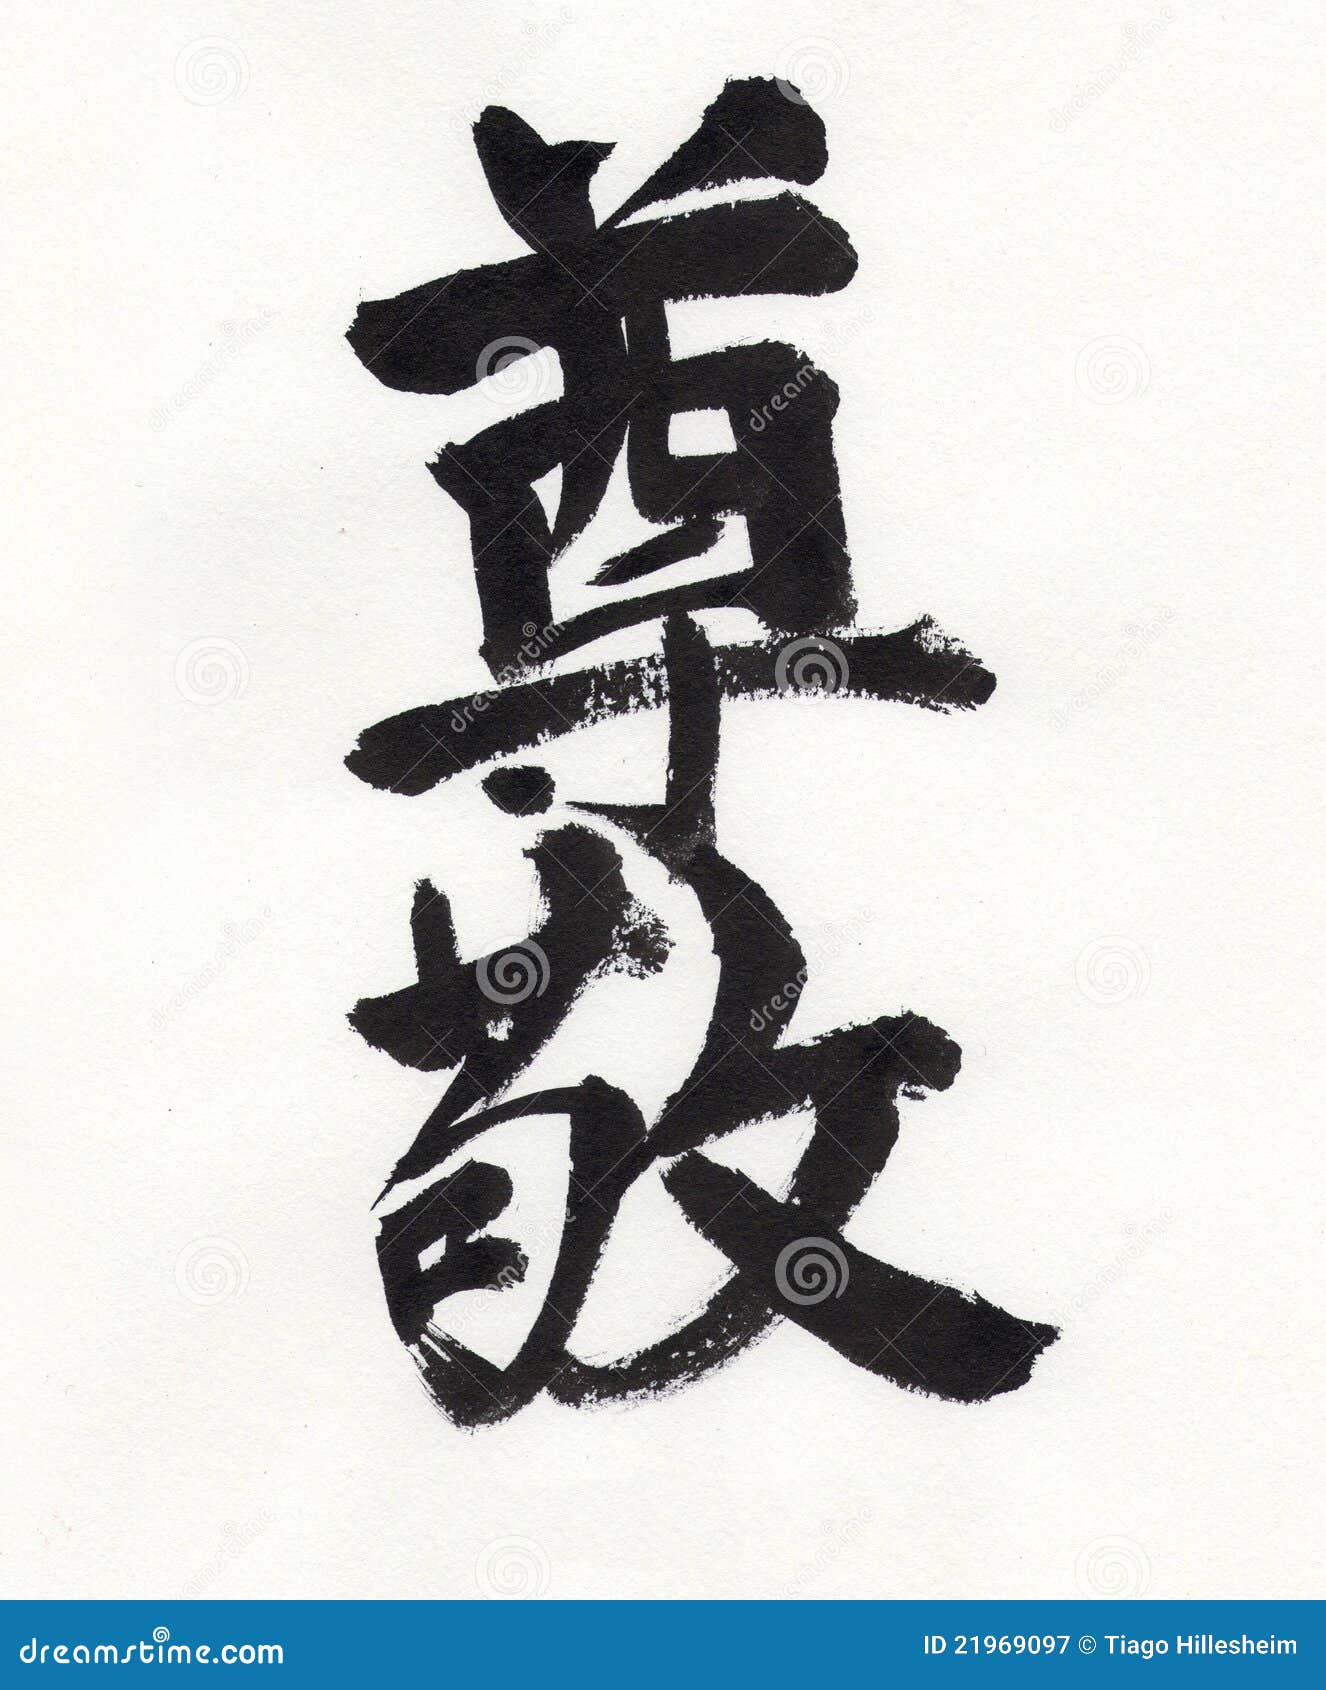 尊敬
dreamstime.com
ID 21969097 © Tiago Hillesheim